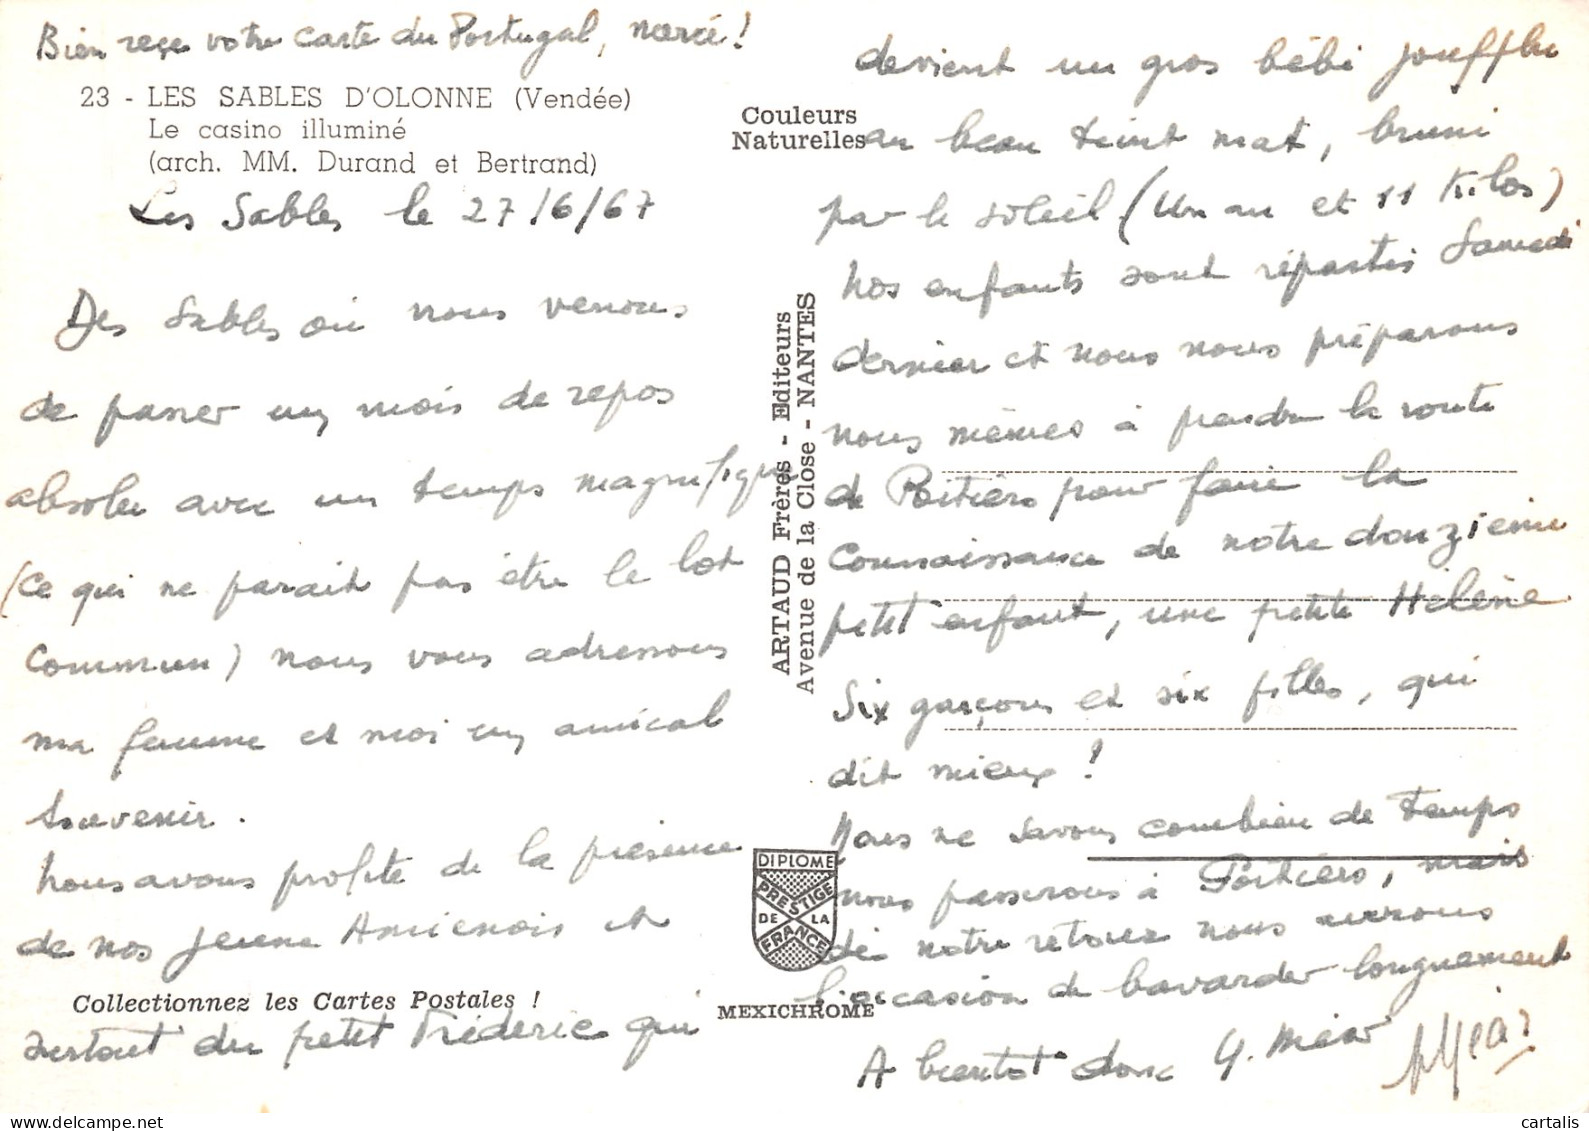 Bien reçu votre carte du Portugal, merci!
23 - LES SABLES D'OLONNE (Vendée)
Le casino illuminé
(arch. MM. Durand et Bertrand)
Les Sables le 27/6/67
Des Sables où nous venons
de passer un mois de repos
absolu avec un temps magnifique
(ce qui ne parait pas être le lot
commun) nous vous adressons
ma femme et moi un amical
souvenir.
Nous avons profité de la présence
de nos jeunes Amienois et
Collectionnez les Cartes Postales !
surtout du petit Fréderic qui
Couleurs
Naturelles
ARTAUD Frères - Editeurs
Avenue de la Close - NANTES
DIPLOME
PRESTIGE
DE LA
FRANCE
MEXICHROME
devient un gros bébé joufflu
au beau teint mat, bruni
par le soleil (Un an et 11 Kilos)
Nos enfants sont répartis Samedi
dernier et nous nous préparons
nous mêmes à prendre la route
de Poitiers pour faire la
connaissance de notre douzième
petit enfant, une petite Hélène
Six garçons et six filles, qui
dit mieux !
Nous ne savons combien de temps
nous passerons à Poitiers, mais
dès notre retour nous aurons
l'occasion de bavarder longuement
A bientôt donc
cartalis